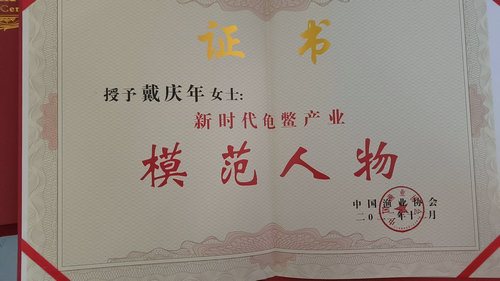 证书
授予戴庆年女士:
新时代龟鳖产业
模范人物
中国渔业协会